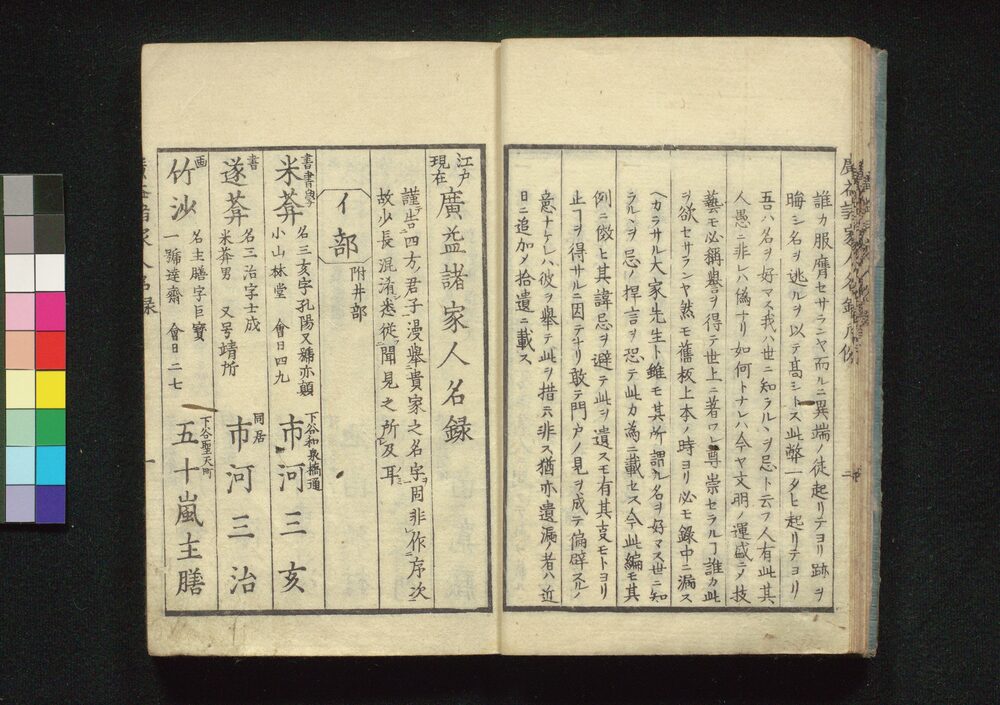 誰カ服膺セサランヤ而ルニ異端ノ徒起リテヨリ跡ヲ
晦シ名ヲ逃ルヲ以テ高シトス此弊一タヒ起リテヨリ
吾ハ名ヲ好マス我ハ世ニ知ラルヽヲ忌ト云フ人有此其
人愚ニ非レハ偽ナリ如何トナレハ今ヤ文明ノ運盛ニノ技
藝モ必稱譽ヲ得テ世上ニ著ワレ尊崇セラルヿ誰カ此
ヲ欲セサランヤ然モ舊板上本ノ時ヨリ必モ錄中ニ漏ス
ヘカラサル大家先生ト雖モ其所謂ル名ヲ好マス世ニ知
ラルヽヲ忌ノ悍言ヲ恐テ此カ為ニ載セス今此編モ其
例ニ倣ヒ其諱忌ヲ避テ此ヲ遺スモ有其支モトヨリ
止ヿヲ得サルニ因テナリ敢テ門戸ノ見ヲ成テ偏辟スルノ
意ナケレハ彼ヲ舉テ此ヲ措云非ス猶亦遺漏ノ者ハ近
日ニ追加メ拾遺ニ載ス
江戸現在
廣益諸家人名録
謹告四方ノ君子漫舉貴家之名字固非作序次
故少長混淆悉從聞見之所及耳
イ部
附井部
書書學
米葊
名三亥字孔陽又號亦顛
小山林堂 會日四九
下谷和泉橋通
市河三亥
書
遂葊
名三治字士成
米葊男 又号靖所
同居
市河三治
画
竹沙
名主膳字巨寶
一號逹齋 會日二七
下谷聖天町
五十嵐主膳